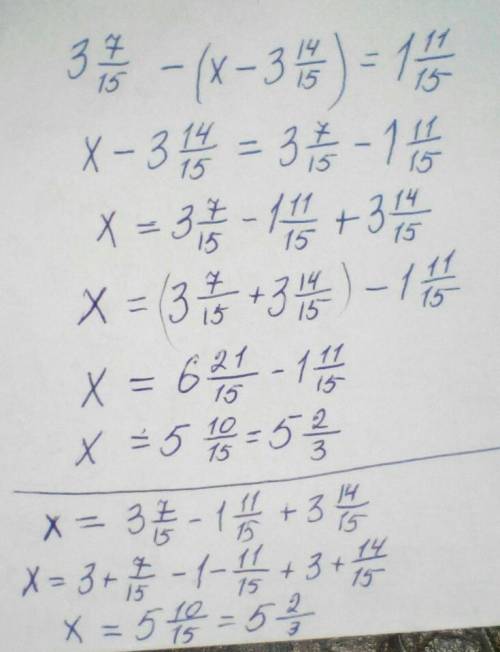 3 7/15 - (x - 3 14/15) = 1 11/15
x - 3 14/15 = 3 7/15 - 1 11/15
x = 3 7/15 - 1 11/15 + 3 14/15
x = (3 7/15 + 3 14/15) - 1 11/15
x = 6 21/15 - 1 11/15
x = 5 10/15 = 5 2/3
x = 3 7/15 - 1 11/15 + 3 14/15
x = 3 + 7/15 - 1 - 11/15 + 3 + 14/15
x = 5 10/15 = 5 2/3